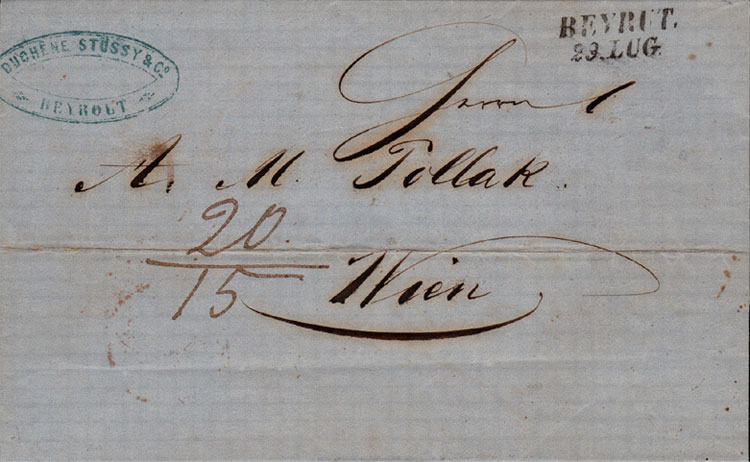 DUCHÊNE STÜSSY & Cº
BEYROUT
BEYRUT.
29. LUG.
Herrn
A. M. Pollak.
20.
15
Wien